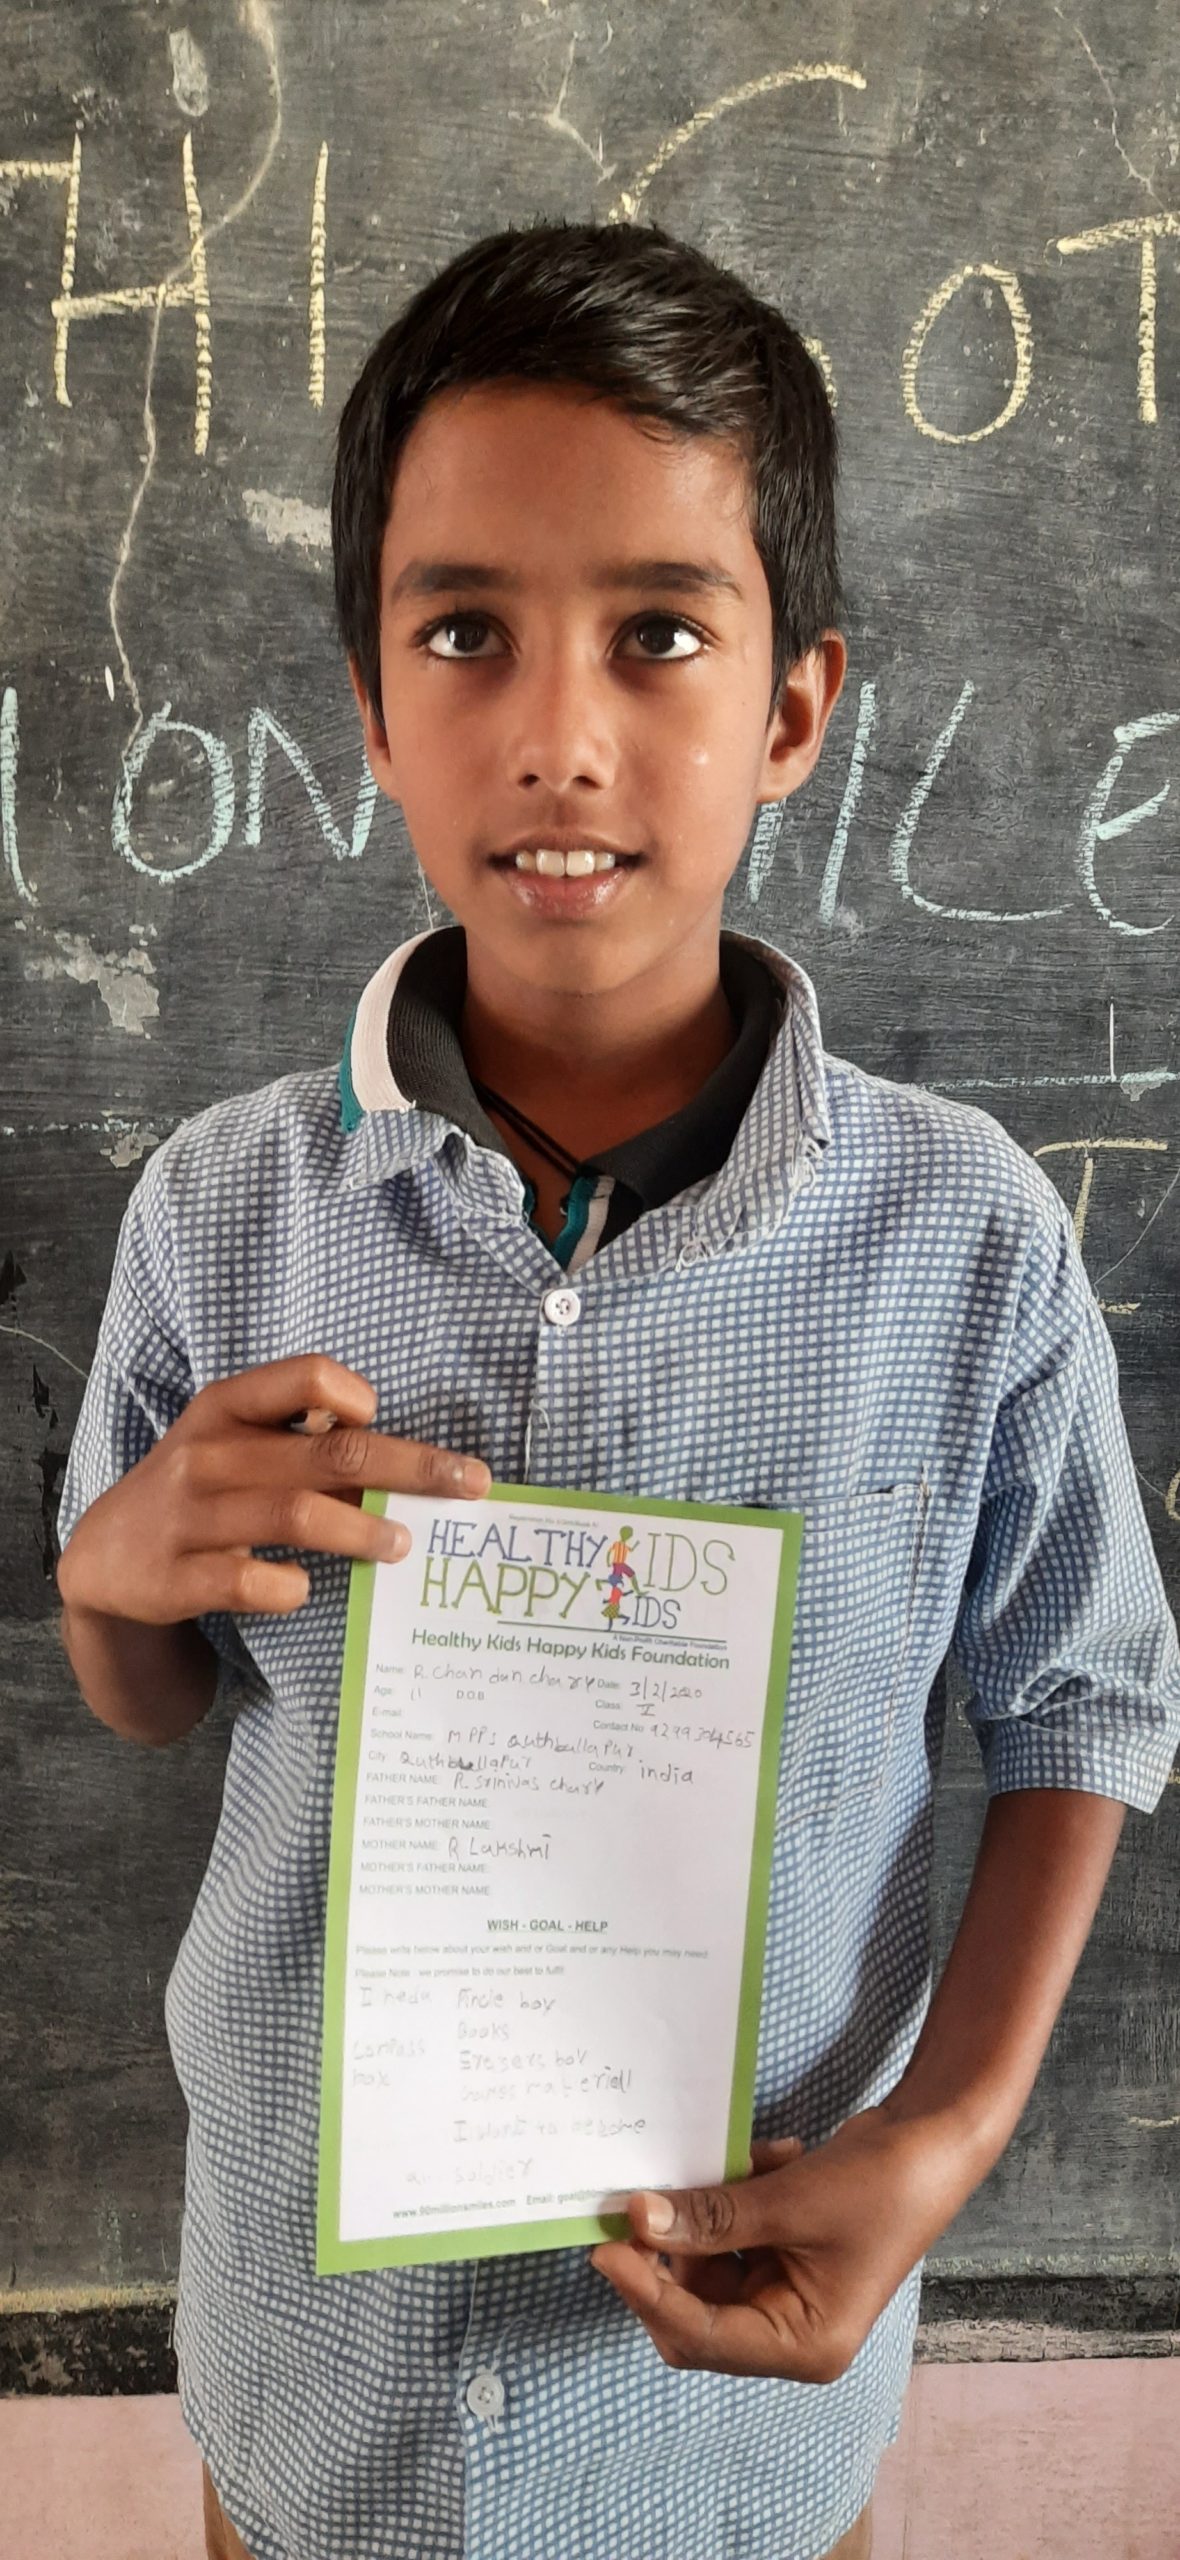 HI
OT
ION
ILE
HEALTHY KIDS
HAPPY KIDS
A Non-Profit Charitable Foundation
Healthy Kids Happy Kids Foundation
Name: R. Chandan chary Date: 3/2/2020
Age: 11 D.O.B Class: I
E-mail: Contact No: 9299394565
School Name: MPPS Quthbullapur
City: Quthbullapur Country: india
FATHER NAME: R. Srinivas chary
FATHER'S FATHER NAME:
FATHER'S MOTHER NAME
MOTHER NAME: R Lakshmi
MOTHER'S FATHER NAME:
MOTHER'S MOTHER NAME:
WISH - GOAL - HELP
Please write below about your wish and or Goal and or any Help you may need
Please Note: we promise to do our best to fulfil
I neda box
Books
Compass Erasers box
box material
I want to become
a soldier
www.90millionsmiles.com Email: